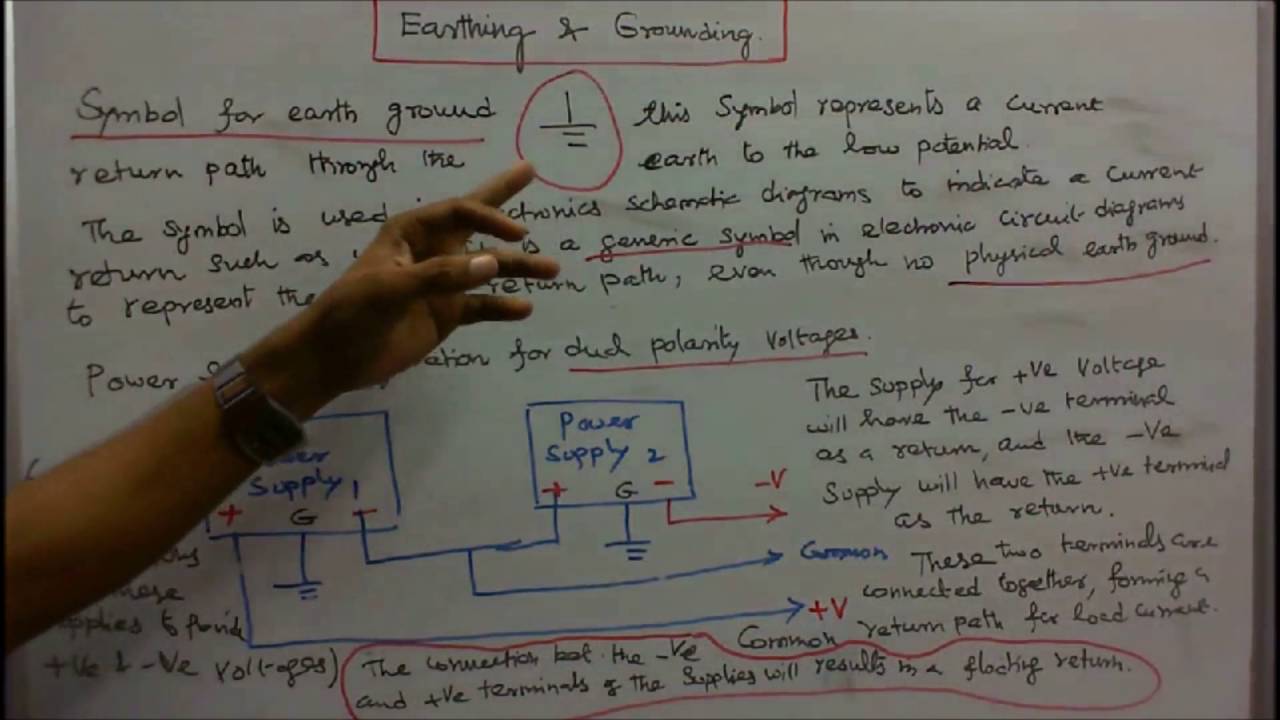 Earthing & Grounding.
Symbol for earth ground this Symbol represents a current
return path through the earth to the low potential.
The symbol is used schematic diagrams to indicate a current
return such as is a generic symbol in electronic circuit diagrams
to represent the return path, even though no physical earth ground.
Power for dual polarity voltages.
The supply for +Ve Voltage
will have the -ve terminal
as a return, and the -Ve
Supply will have the +ve terminal
as the return.
Power
Supply 2
+ G -
-V
Supply 1
+ G -
Common
These two terminals are
connected together, forming a
return path for load current.
+V
Common
+Ve & -Ve Voltages)
The connection bet. the -Ve
and +ve terminals of the Supplies will results in a floating return.